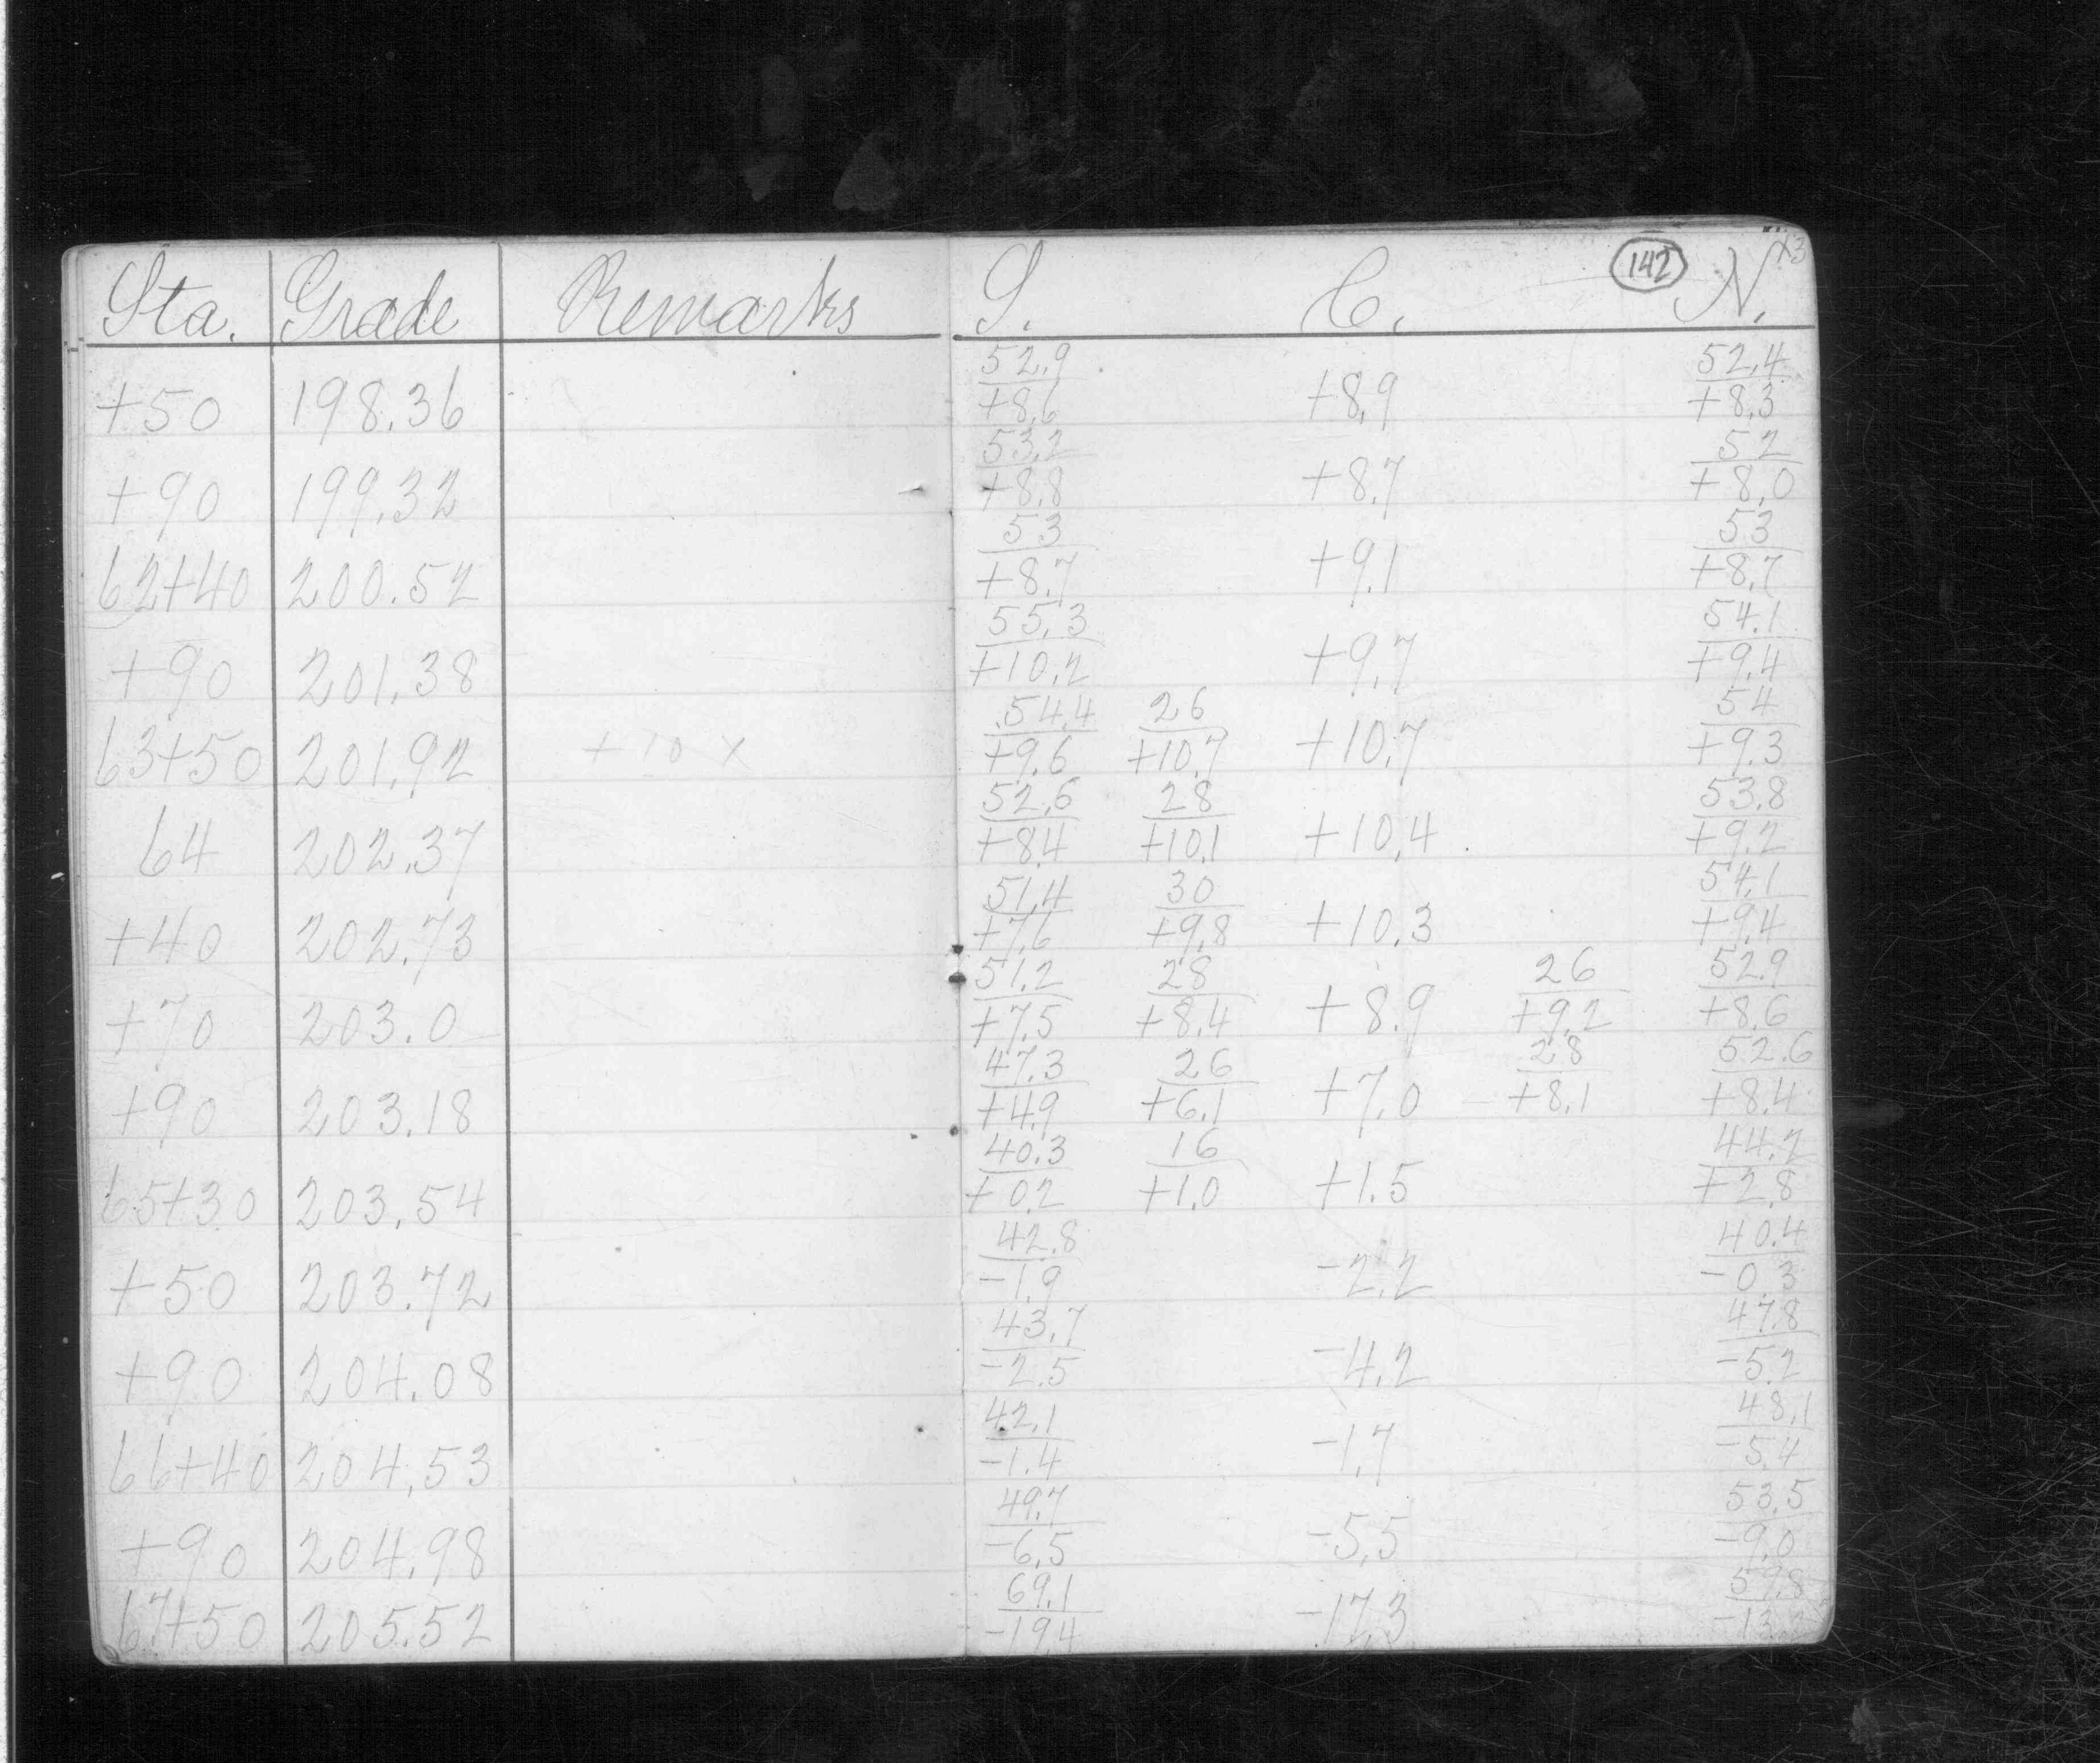 142 13
Sta. Grade Remarks S. C. N.
52.9 52.4
+50 198.36 +8.6 +8.9 +8.3
53.2 52
+90 199.32 +8.8 +8.7 +8.0
53 53
62+40 200.52 +8.7 +9.1 +8.7
55.3 54.1
+90 201.38 +10.2 +9.7 +9.4
54.4 26 54
63+50 201.92 +10 x +9.6 +10.7 +10.7 +9.3
52.6 28 53.8
64 202.37 +8.4 +10.1 +10.4 +9.2
51.4 30 54.1
+40 202.73 +7.6 +9.8 +10.3 +9.4
51.2 28 26 52.9
+70 203.0 +7.5 +8.4 +8.9 +9.2 +8.6
47.3 26 28 52.6
+90 203.18 +4.9 +6.1 +7.0 +8.1 +8.4
40.3 16 44.2
65+30 203.54 +0.2 +1.0 +1.5 +2.8
42.8 40.4
+50 203.72 -1.9 -2.2 -0.3
43.7 47.8
+90 204.08 -2.5 -4.2 -5.2
42.1 48.1
66+40 204.53 -1.4 -1.7 -5.4
49.7 53.5
+90 204.98 -6.5 -5.5 -9.0
69.1 59.8
67+50 205.52 -19.4 -17.3